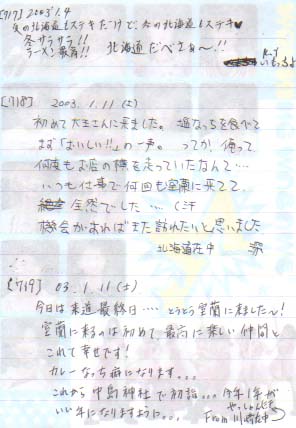 [717] 2003.1.4
夏の北海道もステキだけど、冬の北海道もステキ♥
冬サラサラ!!
ラーメン最高!! 北海道だべさぁ〜!!
[718] 2003.1.11(土)
初めて大王さんに来ました。塩なっちを食べて
まず「おいしい!!」の一声。ってか、俺って
何度もお店の横を走っていたなんて…
いつも仕事で何回も室蘭に来てて、
全然でした…(汗
機会があればまた訪れたいと思いました
北海道在中
[719] 03.1.11(土)
今日は来道最終日‥‥とうとう室蘭に来ました〜!
室蘭に来るのは初めて、最高に楽しい仲間と
これて幸せです!
カレーなっち癖になります。。。
これから中島神社で初詣。。。今年1年が
いい年になりますように。。。
From 川崎在中